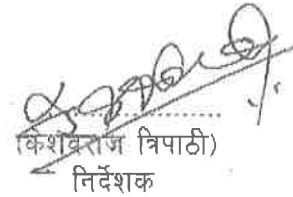 (केशवराज त्रिपाठी)
निर्देशक